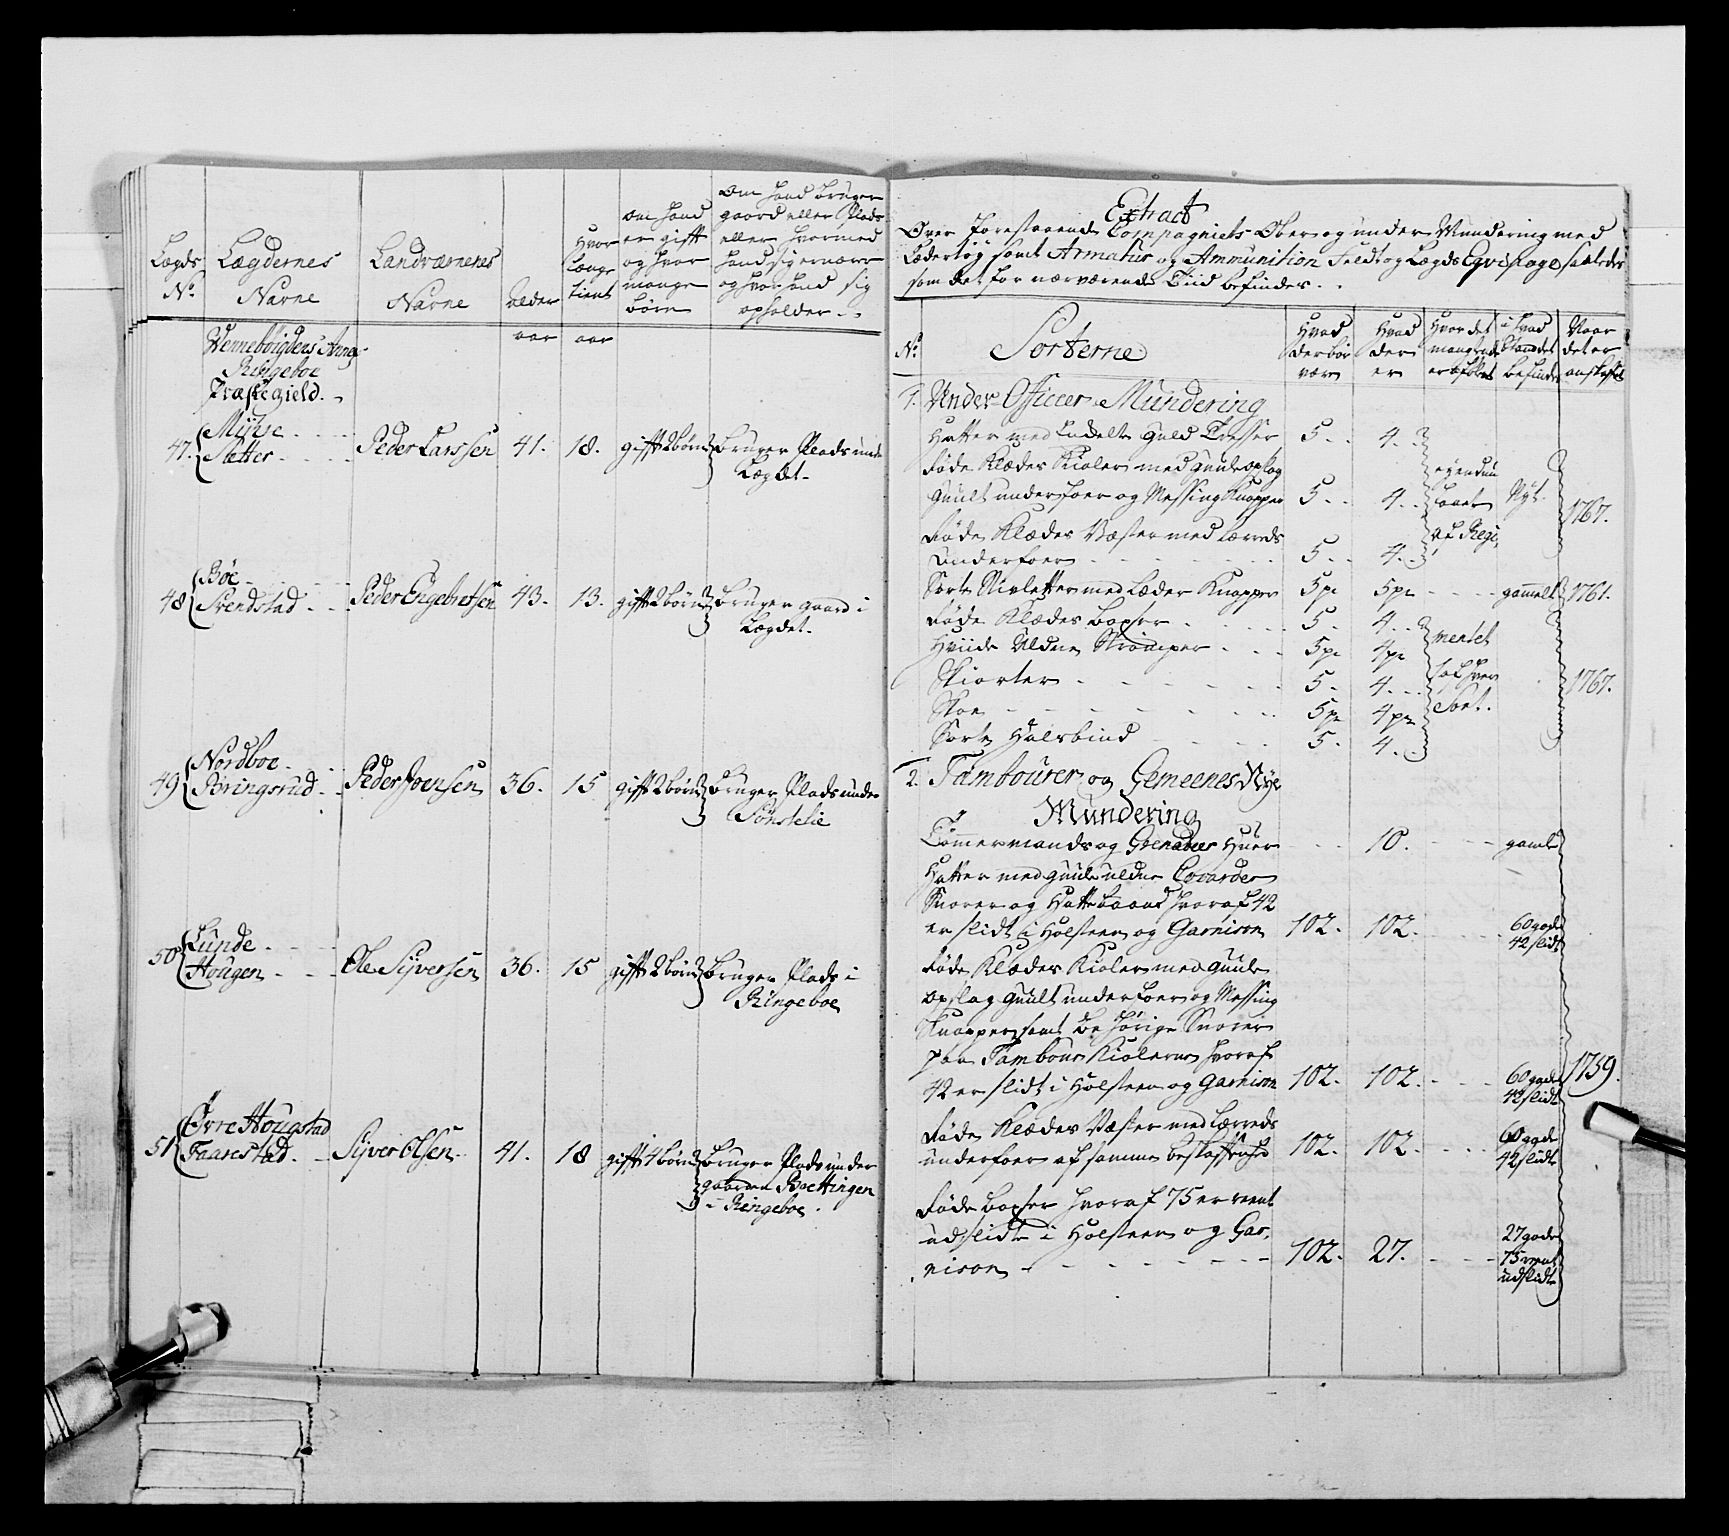 Lægds
No.
Lægdernes
Navne
Landværnenes
Navne
Alder
Hvor
længe
tient
om hand
er gift
og hvor
mange
børn
Om hand bruger
gaard eller Plads
eller hvormed
hand sig ernærer
og hvor hand sig
opholder
aar aar
Vennebøigdens Annex
Ringeboe
Præstegield.
47. Myhre
Sætter
Peder Larssen 41. 18. gift 2 børn bruger Plads under
Lægdet.
48 Bøe
Svendstad
Peder Engebretsen 43. 13. gift 2 børn bruger gaard i
Lægdet.
49 Nordboe
Büringsrud
Peder Joensen 36. 15 gift 2 børn bruger Plads under
Sønstelie
50 Lunde
Hougen
Ole Sijversen 36. 15 gift 2 børn bruger Plads i
Ringeboe
51 Øvre Hougstad
Faarestad
Sijver Olsen 41. 18 gift 4 børn bruger Plads under
gaarden Boettingen
i Ringeboe.
Extract
Over forestaaende Compagniets Ober og under Mundering med
Lædertøy samt Armatur og Ammunition Feldt og Lægds Eqvipage saaledes
som det for nærværende Tiid befindes.
No.
Sorterne
Hvad
der bør
være
Hvad
der
er
Hvor det
manglende
er afblevet
i hvad
Stand det
befindes
Naar
det er
anskaffet
1. Under Officer Mundering
Hatter med Guld Tresser 5. 4.
Røde Klædes Kioler med guule opslag
guult underfoer og Messing Knapper 5. 4. Nyt. 1767.
Røde Klædes Væster med Lærreds
underfoer 5. 4.
af Regi
Sorte Stivletter med Læder Knapper 5 pr 5 pr gammelt 1761.
Røde Klædes boxser 5. 4.
mentet
Hviide Uldne Strømper 5 pr 4 pr
Skiorter 5. 4. 1767.
Skoe 5 pr 4 pr
Sort.
Sorte Halsbind 5. 4.
2. Tambourer og Gemeenes Nye
Mundering
Tømermands og Grenadeer Huer 10. gamle
Hatter med guule uldne Cocarder
Snorer og Hattebaand hvoraf 42
er slidt i Holsteen og Garnison 102. 102. 60 gode
42 slidt
Røde Klædes Kioler med guule
opslag guult underfoer og Messing
Knapper samt behørige Snorer
paa Tambour Kiolerne hvoraf
42 er slidt i Holsteen og Garnison 102. 102. 60 gode
42 slidt
1759.
Røde Klædes Væster med Lærreds
underfoer af samme beskaffenhed 102. 102. 60 gode
42 slidt
Røde boxser hvoraf 75 er reent
udslidte i Holsteen og Gar-
nison 102. 27. 27 gode
75 reent
udslidte